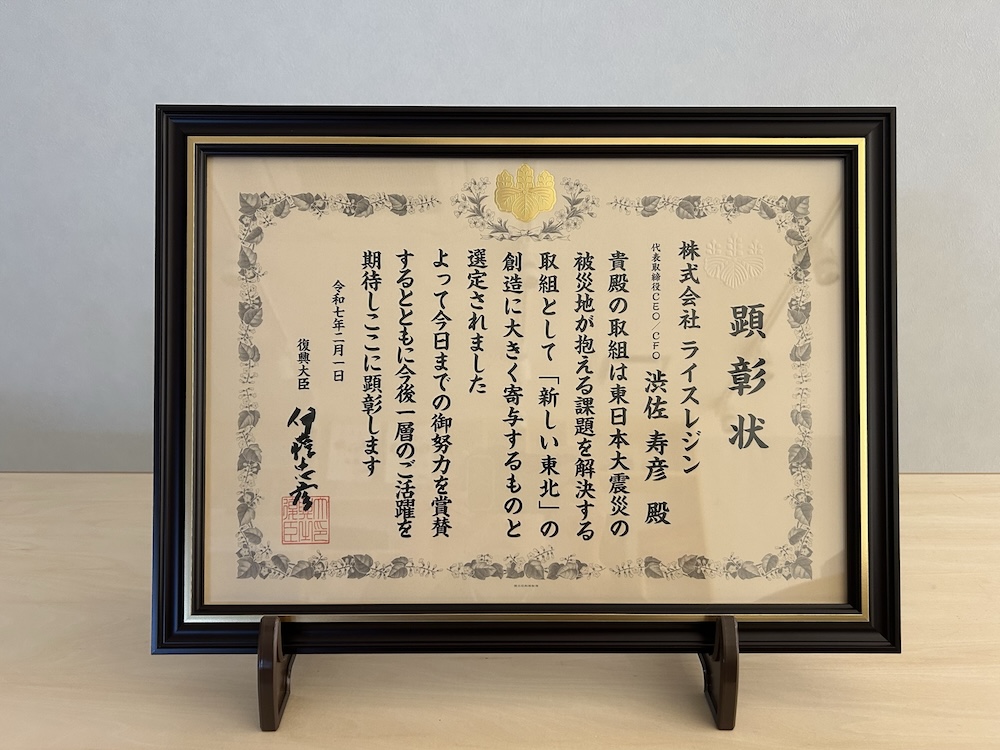 顕彰状
株式会社 ライスレジン
代表取締役CEO/CFO 渋佐 寿彦 殿
貴殿の取組は東日本大震災の
被災地が抱える課題を解決する
取組として「新しい東北」の
創造に大きく寄与するものと
選定されました
よって今日までの御努力を賞賛
するとともに今後一層のご活躍を
期待しここに顕彰します
令和七年二月一日
復興大臣
伊藤忠彦